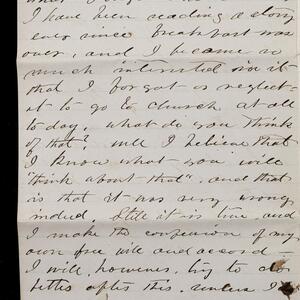 I have been reading a story
ever since breakfast was
over, and I became so
much interested in it
that I forgot or neglect-
it to go to church at all
to day, what do you think
of that? well I believe that
I know what you will
"think about that", and that
is that it was very wrong
indeed. Still it is true, and
I make the confession of my
own free will and accord—
I will, however, try to do
better after this, unless I